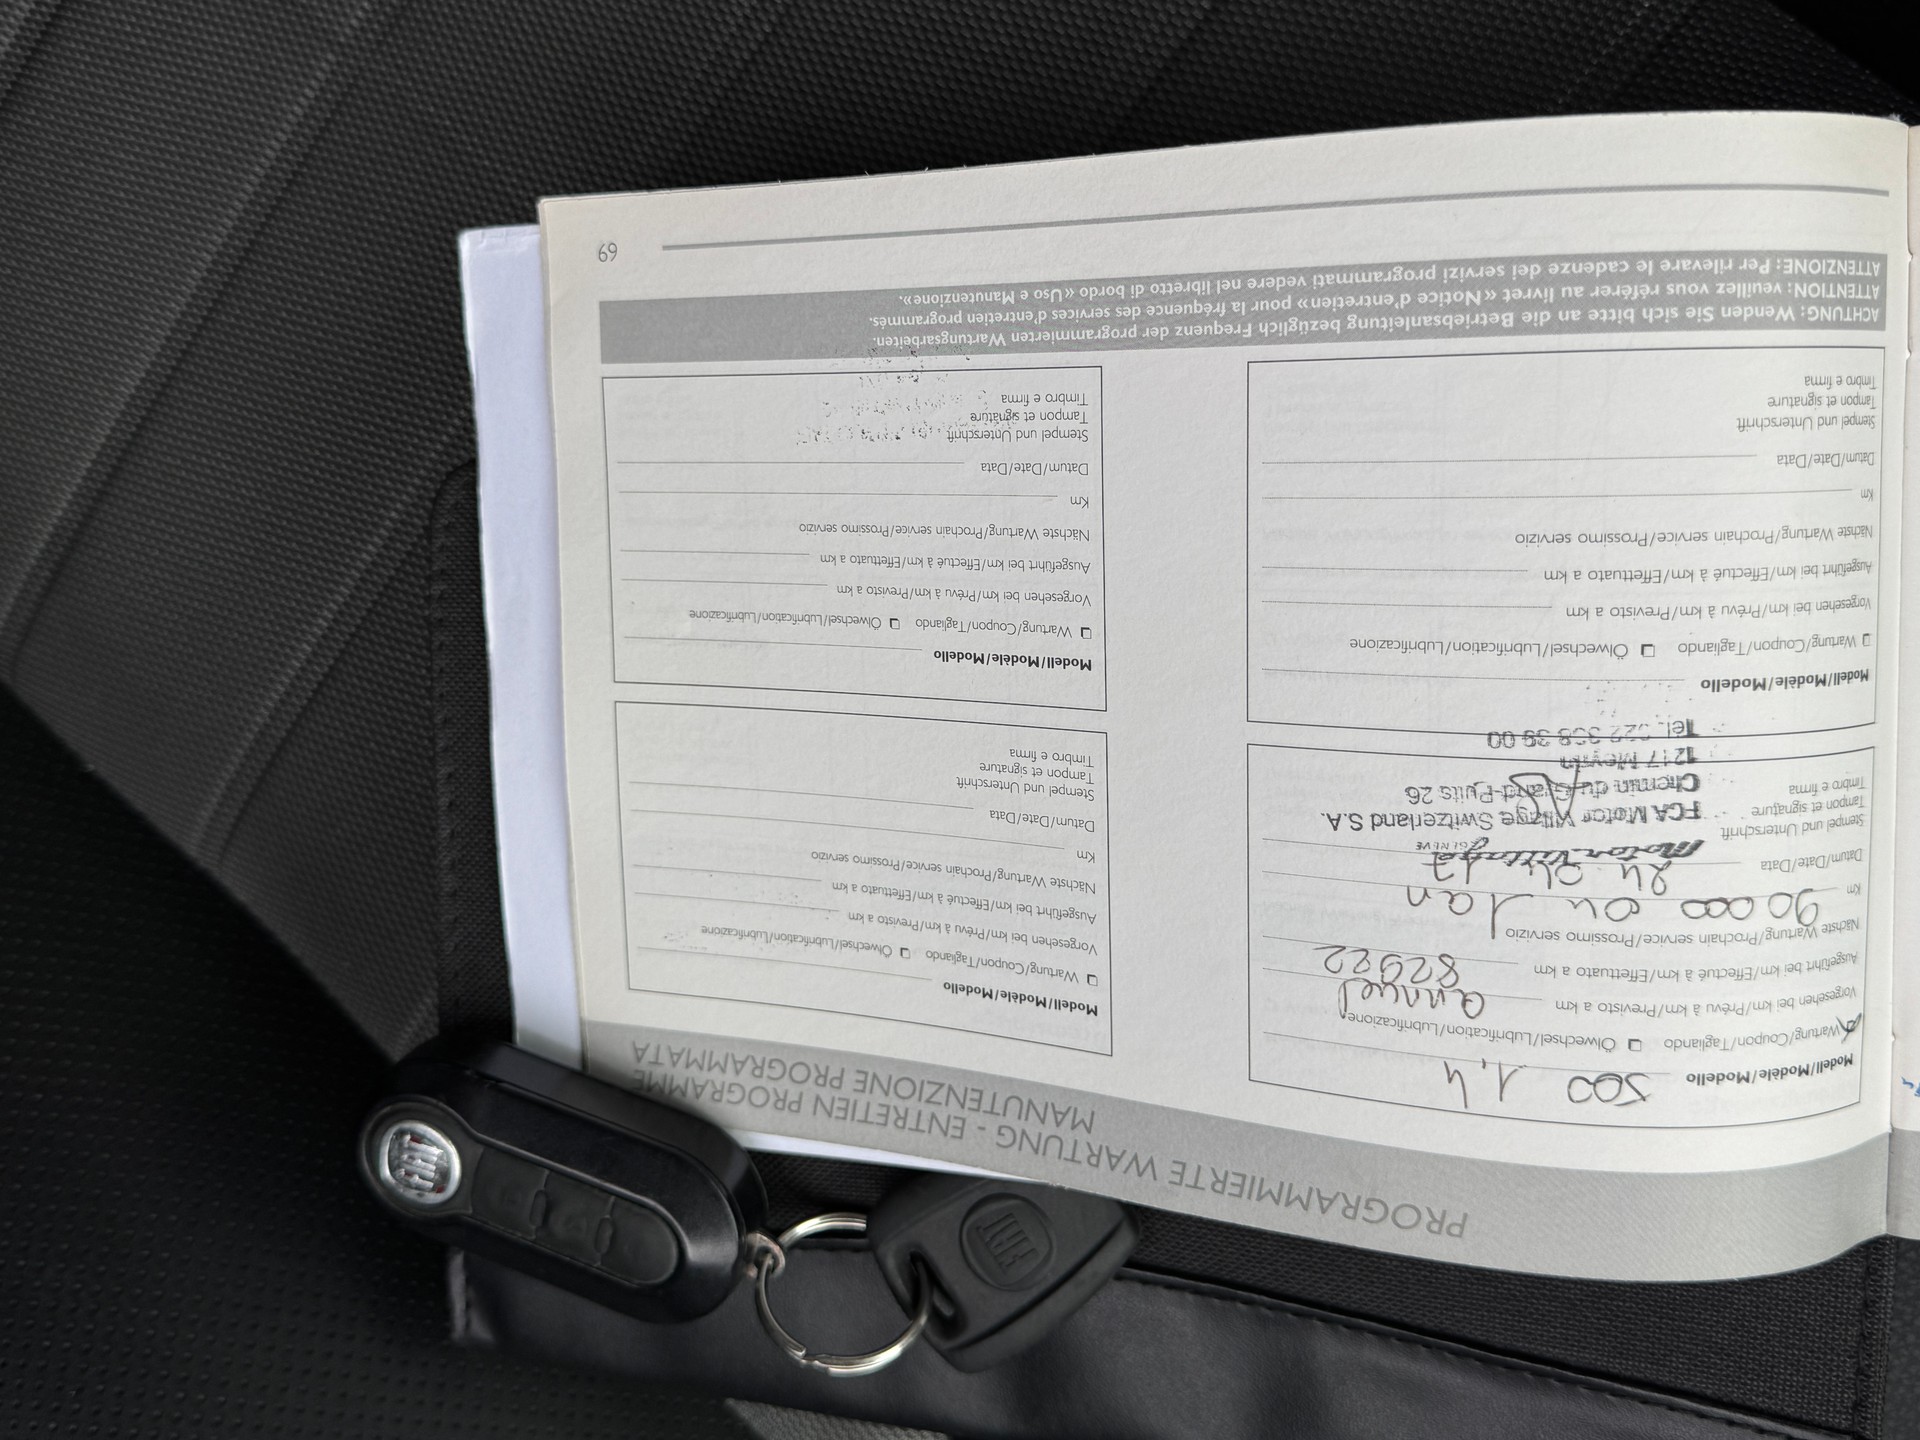 PROGRAMMIERTE WARTUNG - ENTRETIEN PROGRAMME
MANUTENZIONE PROGRAMMATA
Modell/Modèle/Modello 500 1,4
Wartung/Coupon/Tagliando Ölwechsel/Lubrification/Lubrificazione
Vorgesehen bei km/Prévu à km/Previsto a km annuel
Ausgeführt bei km/Effectué à km/Effettuato a km 82922
Nächste Wartung/Prochain service/Prossimo servizio
Km 90 000 ou 1 an
Datum/Date/Data
Motor Village
Stempel und Unterschrift
Tampon et signature
Timbro e firma
FCA Motor Village Switzerland S.A.
Chemin du Grand-Puits 26
1217 Meyrin
Tel. 39 00
Modell/Modèle/Modello
Wartung/Coupon/Tagliando Ölwechsel/Lubrification/Lubrificazione
Vorgesehen bei km/Prévu à km/Previsto a km
Ausgeführt bei km/Effectué à km/Effettuato a km
Nächste Wartung/Prochain service/Prossimo servizio
Km
Datum/Date/Data
Stempel und Unterschrift
Tampon et signature
Timbro e firma
Modell/Modèle/Modello
Wartung/Coupon/Tagliando Ölwechsel/Lubrification/Lubrificazione
Vorgesehen bei km/Prévu à km/Previsto a km
Ausgeführt bei km/Effectué à km/Effettuato a km
Nächste Wartung/Prochain service/Prossimo servizio
Km
Datum/Date/Data
Stempel und Unterschrift
Tampon et signature
Timbro e firma
Modell/Modèle/Modello
Wartung/Coupon/Tagliando Ölwechsel/Lubrification/Lubrificazione
Vorgesehen bei km/Prévu à km/Previsto a km
Ausgeführt bei km/Effectué à km/Effettuato a km
Nächste Wartung/Prochain service/Prossimo servizio
Km
Datum/Date/Data
Stempel und Unterschrift
Tampon et signature
Timbro e firma
ACHTUNG: Wenden Sie sich bitte an die Betriebsanleitung bezüglich Frequenz der programmierten Wartungsarbeiten.
ATTENTION: veuillez vous référer au livret «Notice d'entretien» pour la fréquence des services d'entretien programmés.
ATTENZIONE: Per rilevare le cadenze dei servizi programmati vedere nel libretto di bordo «Uso e Manutenzione».
69
FIAT
FIAT